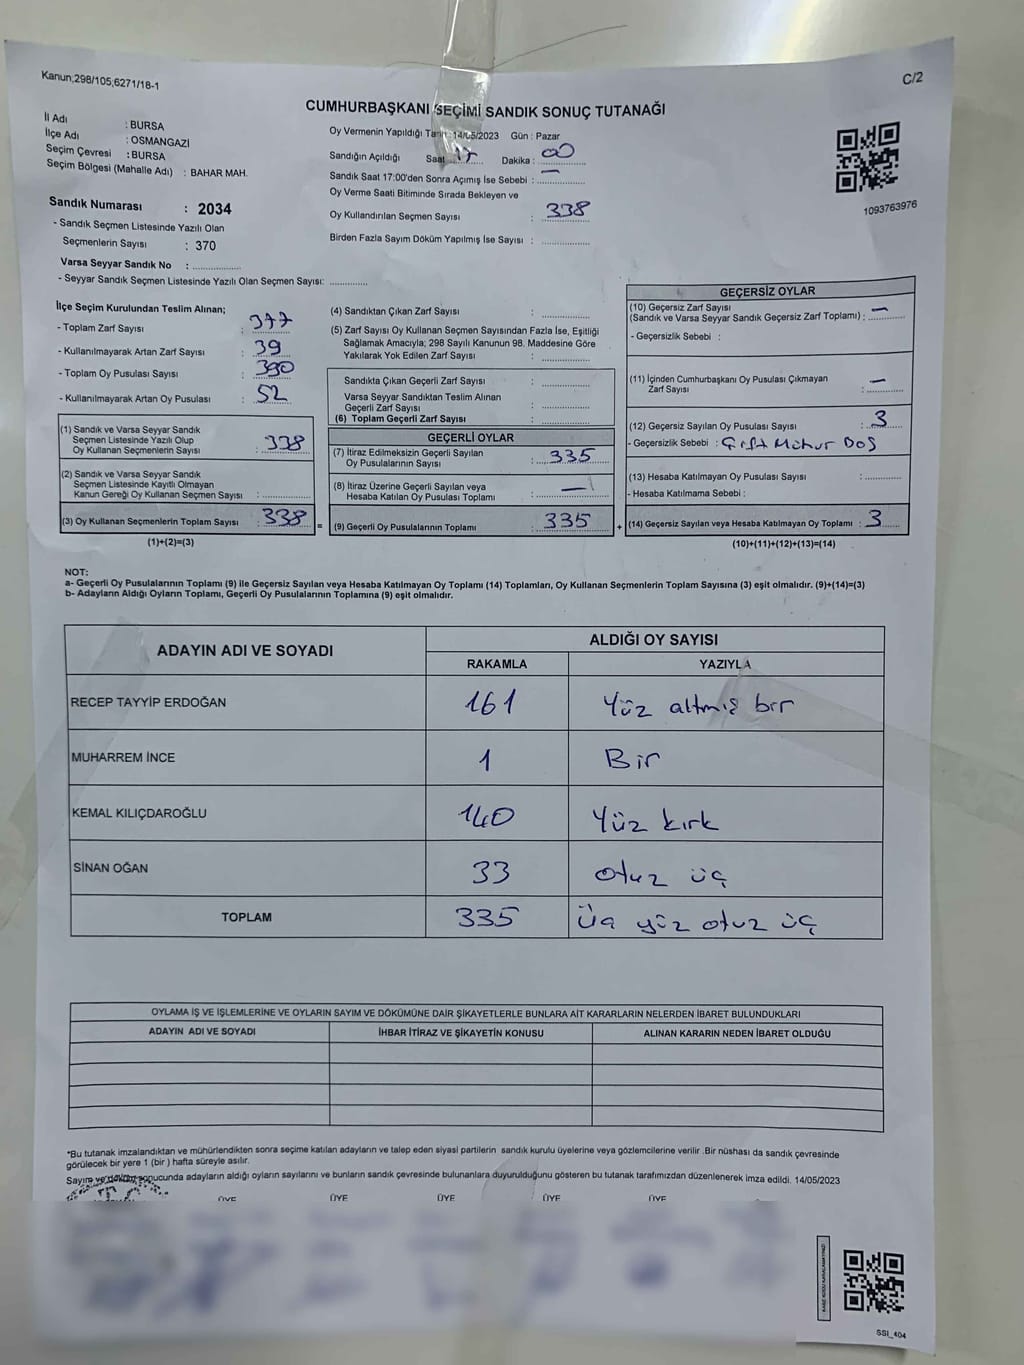 Kanun;298/105;6271/18-1
C/2
CUMHURBAŞKANI SEÇİMİ SANDIK SONUÇ TUTANAĞI
İl Adı : BURSA
İlçe Adı : OSMANGAZİ
Seçim Çevresi : BURSA
Seçim Bölgesi (Mahalle Adı) : BAHAR MAH.
Sandık Numarası : 2034
- Sandık Seçmen Listesinde Yazılı Olan
Seçmenlerin Sayısı : 370
Varsa Seyyar Sandık No : ................
- Seyyar Sandık Seçmen Listesinde Yazılı Olan Seçmen Sayısı: ............
Oy Vermenin Yapıldığı Tarih : 14/05/2023 Gün : Pazar
Sandığın Açıldığı Saat : 17 Dakika : 00
Sandık Saat 17:00'den Sonra Açımış İse Sebebi : —
Oy Verme Saati Bitiminde Sırada Bekleyen ve
Oy Kullandırılan Seçmen Sayısı : 338
Birden Fazla Sayım Döküm Yapılmış İse Sayısı : ................
1093763976
İlçe Seçim Kurulundan Teslim Alınan;
- Toplam Zarf Sayısı : 377
- Kullanılmayarak Artan Zarf Sayısı : 39
- Toplam Oy Pusulası Sayısı : 390
- Kullanılmayarak Artan Oy Pusulası : 52
(1) Sandık ve Varsa Seyyar Sandık
Seçmen Listesinde Yazılı Olup
Oy Kullanan Seçmenlerin Sayısı : 338
(2) Sandık ve Varsa Seyyar Sandık
Seçmen Listesinde Kayıtlı Olmayan
Kanun Gereği Oy Kullanan Seçmen Sayısı : ................
(3) Oy Kullanan Seçmenlerin Toplam Sayısı : 338 =
(1)+(2)=(3)
(4) Sandıktan Çıkan Zarf Sayısı : ................
(5) Zarf Sayısı Oy Kullanan Seçmen Sayısından Fazla İse, Eşitliği
Sağlamak Amacıyla; 298 Sayılı Kanunun 98. Maddesine Göre
Yakılarak Yok Edilen Zarf Sayısı : ................
Sandıkta Çıkan Geçerli Zarf Sayısı : ................
Varsa Seyyar Sandıktan Teslim Alınan
Geçerli Zarf Sayısı : ................
(6) Toplam Geçerli Zarf Sayısı : ................
GEÇERLİ OYLAR
(7) İtiraz Edilmeksizin Geçerli Sayılan
Oy Pusulalarının Sayısı : 335
(8) İtiraz Üzerine Geçerli Sayılan veya
Hesaba Katılan Oy Pusulası Toplamı : —
(9) Geçerli Oy Pusulalarının Toplamı : 335 +
GEÇERSİZ OYLAR
(10) Geçersiz Zarf Sayısı
(Sandık ve Varsa Seyyar Sandık Geçersiz Zarf Toplamı) : —
- Geçersizlik Sebebi :
(11) İçinden Cumhurbaşkanı Oy Pusulası Çıkmayan
Zarf Sayısı : —
(12) Geçersiz Sayılan Oy Pusulası Sayısı : 3
- Geçersizlik Sebebi : Çift Mühür Boş
(13) Hesaba Katılmayan Oy Pusulası Sayısı : ................
- Hesaba Katılmama Sebebi :
(14) Geçersiz Sayılan veya Hesaba Katılmayan Oy Toplamı : 3
(10)+(11)+(12)+(13)=(14)
NOT:
a- Geçerli Oy Pusulalarının Toplamı (9) ile Geçersiz Sayılan veya Hesaba Katılmayan Oy Toplamı (14) Toplamları, Oy Kullanan Seçmenlerin Toplam Sayısına (3) eşit olmalıdır. (9)+(14)=(3)
b- Adayların Aldığı Oyların Toplamı, Geçerli Oy Pusulalarının Toplamına (9) eşit olmalıdır.
ADAYIN ADI VE SOYADI ALDIĞI OY SAYISI
RAKAMLA YAZIYLA
RECEP TAYYİP ERDOĞAN 161 Yüz altmış bir
MUHARREM İNCE 1 Bir
KEMAL KILIÇDAROĞLU 140 Yüz kırk
SİNAN OĞAN 33 otuz üç
TOPLAM 335 Üç yüz otuz üç
OYLAMA İŞ VE İŞLEMLERİNE VE OYLARIN SAYIM VE DÖKÜMÜNE DAİR ŞİKAYETLERLE BUNLARA AİT KARARLARIN NELERDEN İBARET BULUNDUKLARI
ADAYIN ADI VE SOYADI İHBAR İTİRAZ VE ŞİKAYETİN KONUSU ALINAN KARARIN NEDEN İBARET OLDUĞU
*Bu tutanak imzalandıktan ve mühürlendikten sonra seçime katılan adayların ve talep eden siyasi partilerin sandık kurulu üyelerine veya gözlemcilerine verilir .Bir nüshası da sandık çevresinde
görülecek bir yere 1 (bir ) hafta süreyle asılır.
Sayım ve döküm sonucunda adayların aldığı oyların sayılarını ve bunların sandık çevresinde bulunanlara duyurulduğunu gösteren bu tutanak tarafımızdan düzenlenerek imza edildi. 14/05/2023
ÜYE ÜYE ÜYE ÜYE ÜYE
SSI_404